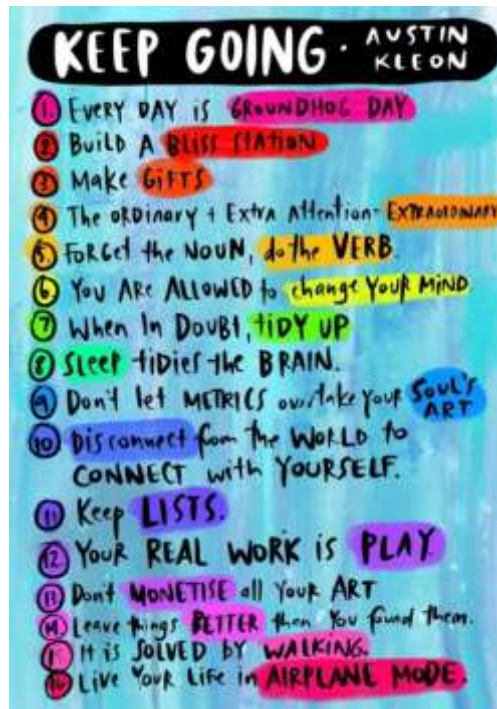 KEEP GOING · AUSTIN KLEON
1. EVERY DAY is GROUNDHOG DAY
2 BUILD A BLISS STATION
3 Make GIFTS
4 The ORDINARY + Extra Attention = EXTRAORDINARY
5. FORGET the NOUN, do the VERB.
6 YOU ARE ALLOWED to change YOUR MIND
7 When In Doubt, tiDY UP
8 SLEEP tidies the BRAIN.
9 Don't let METRICS overtake your SOUL'S ART
10 Disconnect from the WORLD to
CONNECT with YOURSELF.
11 Keep LISTS.
12. YOUR REAL WORK is PLAY.
13 Don't MONETISE all Your ART
14. Leave things BETTER then You found them.
15 It is SOLVED BY WALKING.
16 Live Your Life in AIRPLANE MODE.